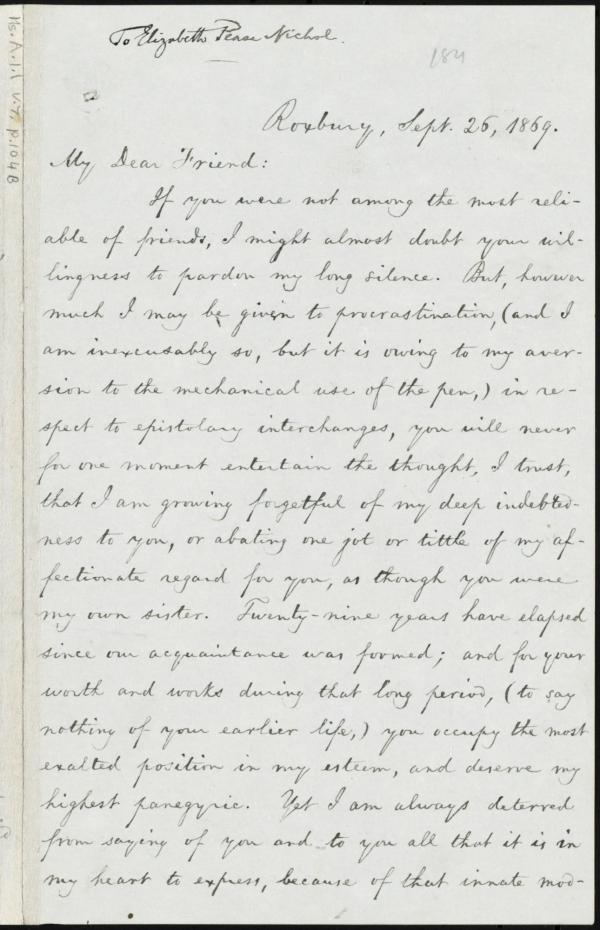 To Elizabeth Pease Nichol.
184
Ms. A.1.1 v.7, p.104B
Roxbury, Sept. 26, 1869.
My Dear Friend:
If you were not among the most reli-
able of friends, I might almost doubt your wil-
lingness to pardon my long silence. But, however
much I may be given to procrastination, (and I
am inexcusably so, but it is owing to my aver-
sion to the mechanical use of the pen,) in re-
spect to epistolary interchanges, you will never
for one moment entertain the thought, I trust,
that I am growing forgetful of my deep indebted-
ness to you, or abating one jot or tittle of my af-
fectionate regard for you, as though you were
my own sister. Twenty-nine years have elapsed
since our acquaintance was formed; and for your
worth and works during that long period, (to say
nothing of your earlier life,) you occupy the most
exalted position in my esteem, and deserve my
highest panegyric. Yet I am always deterred
from saying of you and to you all that it is in
my heart to express, because of that innate mod-